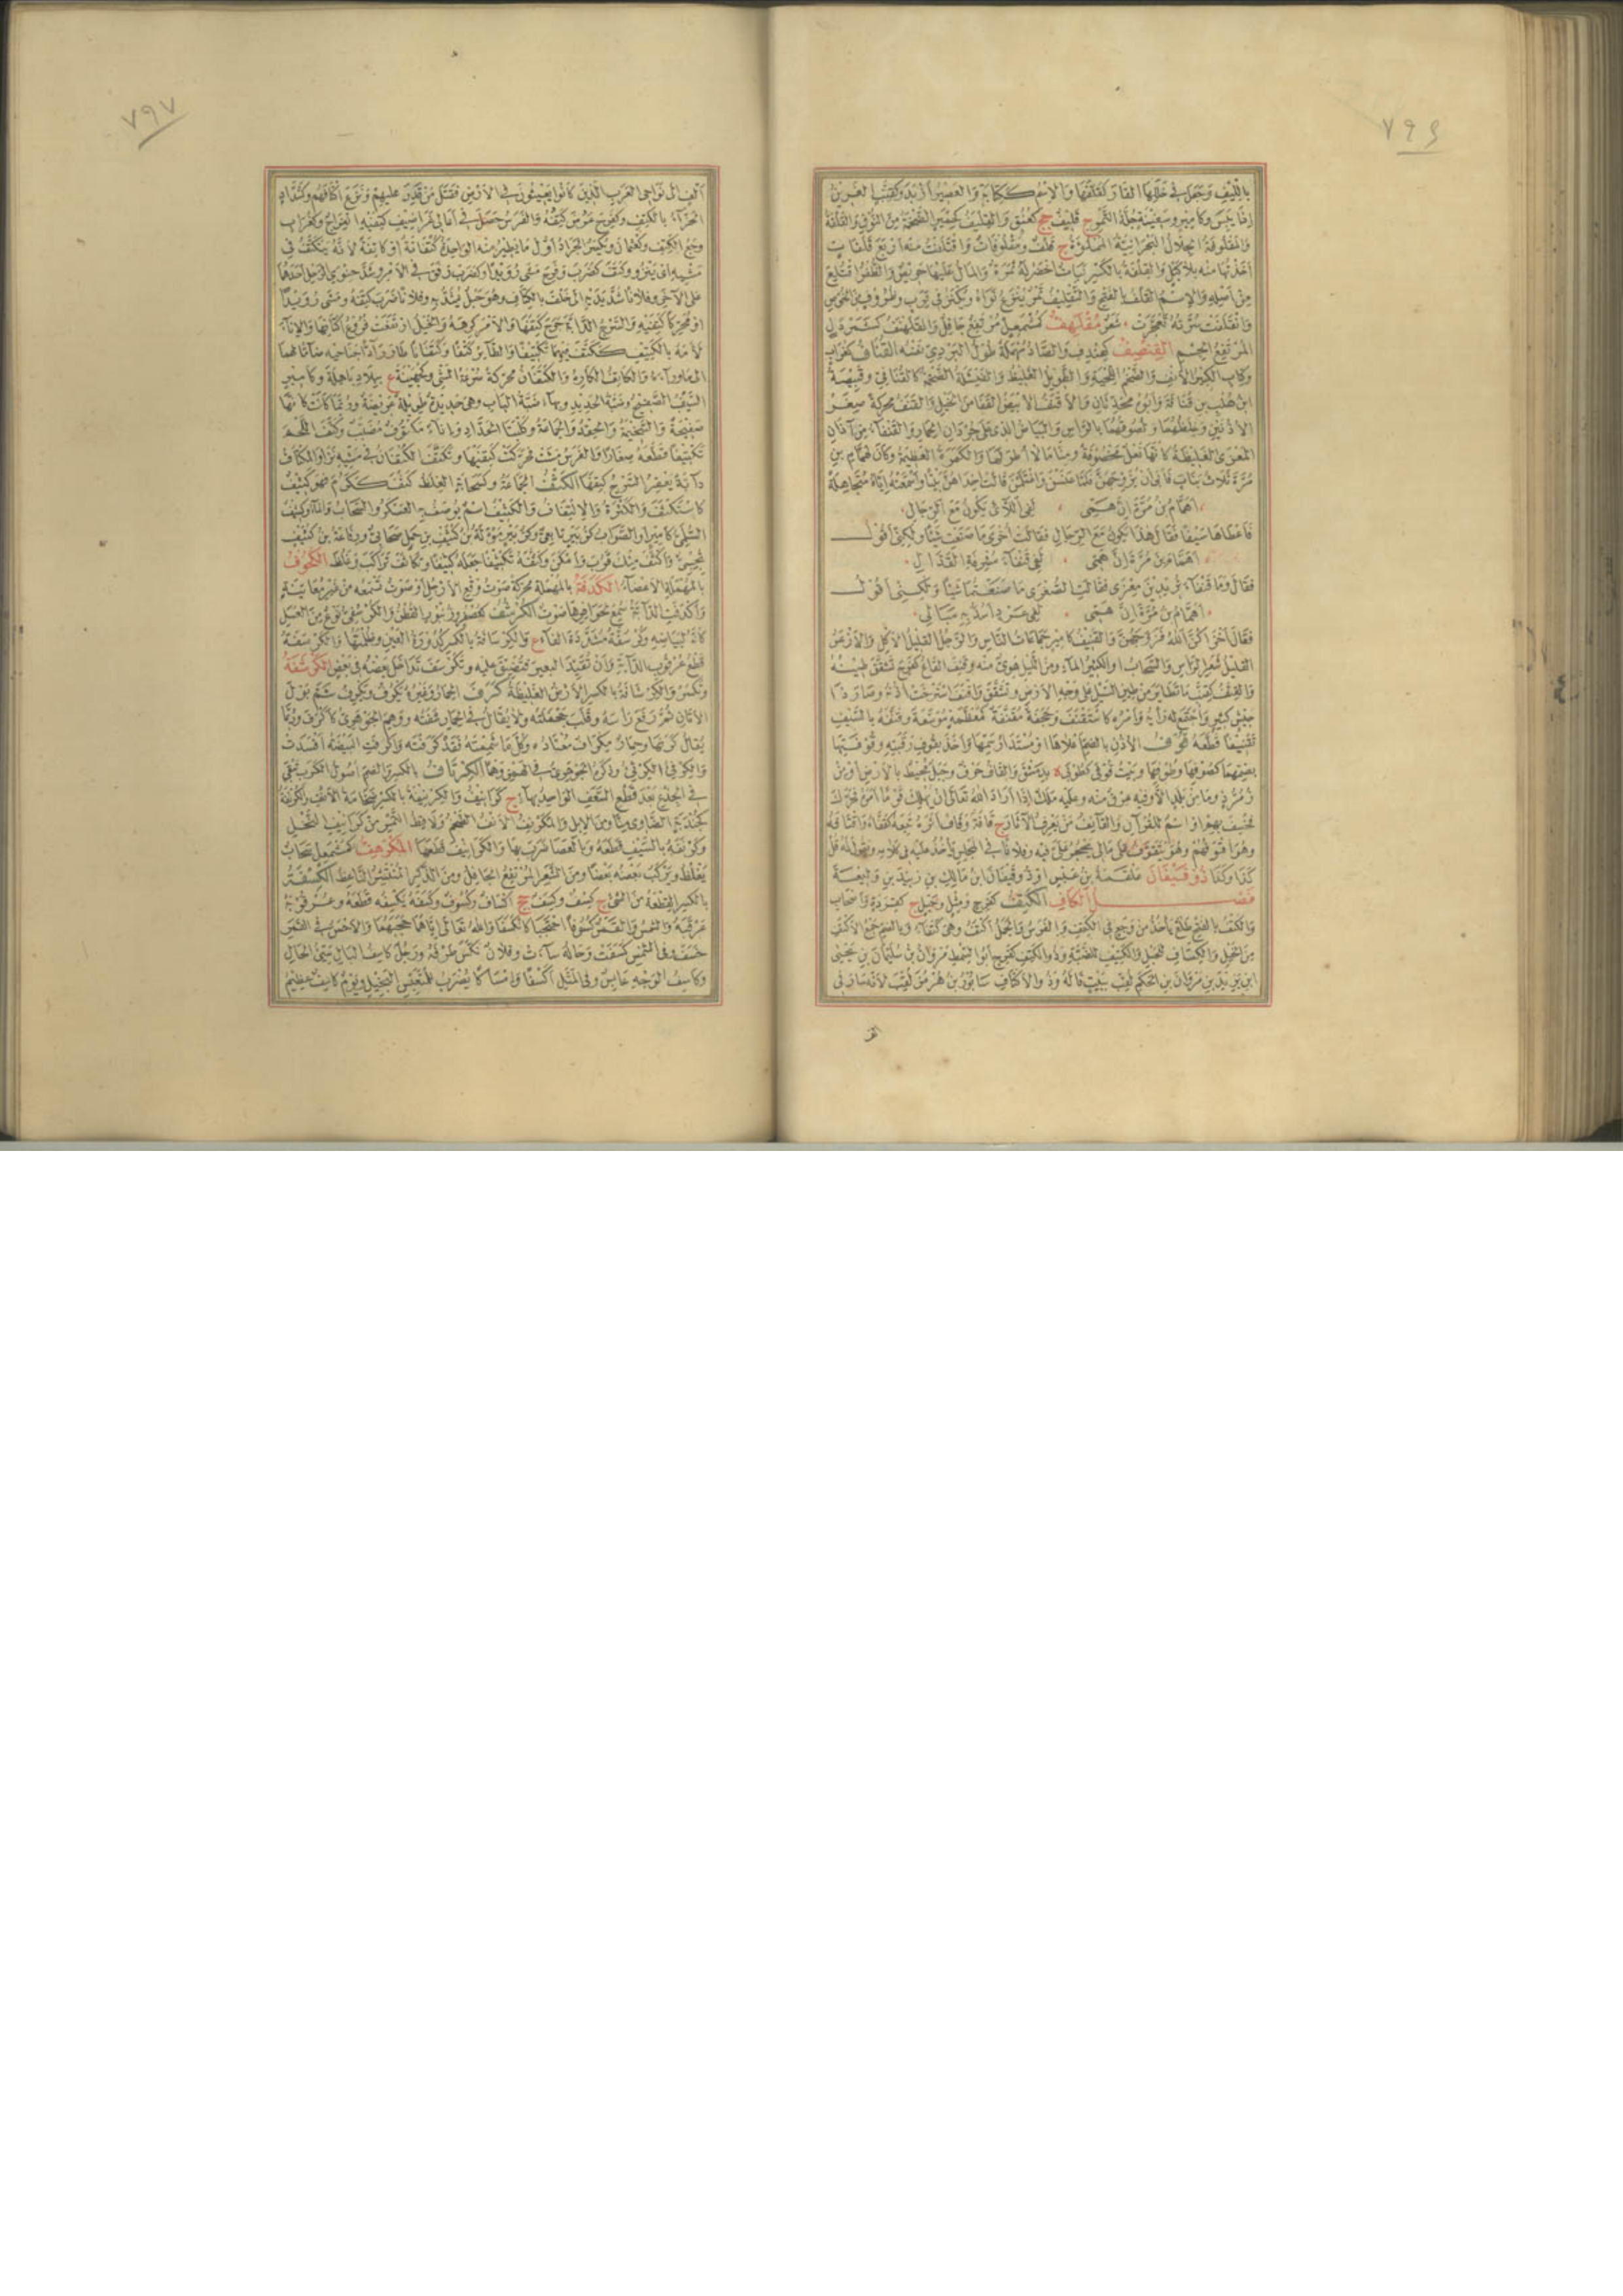 ٧٩٦
بالليف وجعل في خللها القار كقلفها والاسم ككتابة والعصير ازبد
اذا يبس وكامير وسفينة جلة التمر ج قليف جج كعنق
والمقلوفة الجلال البحرانية المملوءة ج قلف ومقلوفات واقتلفت منه اربع قلفات
اخذتها منه بلا كيل والقلفة بالكسر نبات اخضر له ثمرة والمال عليها حريص
من اصله والاسم القلف بالفتح والتقليف تمر ينزع نواه ويكنز في قرب وظروف من الخوص
وانقلفت سرته تعجرت شعر مقلهف كمشمعل مرتفع جافل والقلهنف كشمردل
المرتفع الجسم القنصف كخندف والصاد مهملة طوط البردي نفسه القناف كغراب
وكتاب الكبير الانف والضخم اللحية والطويل الغليظ والفيشلة الضخمة كالقنافي وقبيصة
ابن هلب بن قنافة والقنف محركة صغر
الاذنين وغلظهما ولصوقهما بالراس والبياض الذي على جردان الحمار والقنفاء من آذان
المعزى الغليظة كانها نعل مخصوفة ومنا ما لا اطر لها والكمرة العظيمة وكان لهمام بن
مرة ثلاث بنات فابى ان يزوجهن فلما عنسن واغتلمن قالت احداهن بيتا واسمعته اياه متجاهلة
اهمام بن مرة ان همي لفي اللائي يكون مع الرجال
فاعطاها سيفا فقال هذا يكون مع الرجال فقالت اخرى ما صنعت شيئا ولكني اقول
اهمام بن مرة ان همي لفي قنفاء مشرفة القذال
فقال وما قنفاء تريدين معزى فقالت الصغرى ما صنعتما شيئا ولكني اقول
اهمام بن مرة ان همي لفي عرد اسد به مبالي
فقال اخزاكن الله فزوجهن والقنيف كامير جماعات الناس والرجل القليل الاكل والازعر
القليل شعر الراس والسحاب او الكثير الماء ومن الليل هوي منه وقنف القاع كفرح تشقق طينه
والقنف كقنب ما تطاير من طين السيل على وجه الارض وتشقق واقنف استرخت اذنه وصار ذا
جيش كثير واجتمع له رايه وامره كاستقنف وحجفة مقنفة كمعظمة موسعة وقنفه بالسيف
تقنيفا قطعه قوف الاذن بالضم اعلاها او مستدار سمها واخذ بقوف رقبته وقوفتها
بضمهما كصوفها وطوفها وبيت قوفى كطوبى ة بدمشق والقاف حرف وجبل محيط بالارض او من
زمرد وما من بلد الا وفيه عرق منه وعليه ملك اذا اراد الله تعالى ان يهلك قوما امره فحرك
فخسف بهم او اسم للقرآن والقائف من يعرف الآثار ج قافة وقاف اثره تبعه كقفاه واقتافه
وهو اقوفهم وهو يتقوف على مالي يحجر علي فيه وفلانا في المجلس ياخذ عليه في كلامه ويقول له قل
كذا وكذا ذو قيفان علقمة بن عبس او ذو قيفان ابن مالك بن زبيد بن وليعة
فصل الكاف الكتف كفرح ومثل وجبل ج كقردة واصحاب
والكتف بالفتح ظلع ياخذ من وجع في الكتف والفرس والجمل اكتف وهي كتفاء وبالضم جمع الاكتف
من الخيل والكتاف للحبل والكتيف للضبة وذو الكتف كفرح ابو السمط مروان بن سليمان بن يحيى
ابن يزيد بن مروان بن الحكم لقب ببيت قاله وذو الاكتاف سابور بن هرمز لقب لانه سار في
الف
٧٩٧
الف الى نواحي العرب الذين كانوا يعيثون في الارض فقتل من قدر عليهم ونزع اكتافهم وكشداد
الحزاء بالكتف وكفرح عرض كتفه والفرس حصل في اعالي غراضيف كتفيه انفراج وكغراب
وجع الكتف وكعثمان ويكسر الجراد اول ما يطير منه الواحدة كتفانة او كاتفة لانه يتكتف في
مشيه اي ينزو وكتف كضرب وفرح مشى رويدا وكضرب رفق في الامر وشد حنوي الرحل احدهما
على الآخر وفلانا شد يديه الى خلف بالكتاف وهو حبل يشد به وفلانا ضرب كتفه ومشى رويدا
او محركا كتفيه والسرج الدابة جرح كتفها والامر كرهه والخيل ارتفعت فروع اكتافها والاناء
لامه بالكتيف ككتف فيهما تكتيفا والطائر كتفا وكتفانا طار رادا جناحيه ضاما لهما
الى ما وراءه والكاتف الكاره والكتفان محركة سرعة المشي وكجهينة ع ببلاد باهلة وكامير
السيف الصفيح وضبة الحديد وبهاء ضبة الباب وهي حديدة طويلة عريضة وربما كانت كانها
صفيحة والسخيمة والحقد والجماعة وكلبتا الحداد واناء مكتوف مضبب وكتف اللحم
تكتيفا قطعه صغارا والفرس مشت فحركت كتفيها وتكتف الكتفان في مشيه نزا والمكتاف
دابة يعقر السرج كتفها الكثف الجماعة وكسحابة الغلظ كثف ككرم فهو كثيف
كاستكثف والكثرة والالتفاف والكثيف اسم يوصف به العسكر والسحاب والماء وكثيف
السلمي كامير او الصواب كزبير تابعي
واكثف منك قرب وامكن وكثفه تكثيفا جعله كثيفا وتكاثف تراكب وغلظ الكحوف
بالمهملة الاعضاء الكدفة بالمهملة محركة صوت وقع الارجل او صوت تسمعه من غير معاينة
واكدفت الدابة سمع لحوافرها صوت الكرشف كعصفور وزنبور القطن والكرسفي نوع من العسل
كانه لبياضه وكرسفة مشددة الفاء ع والكرسفة
قطع عرقوب الدابة وان تقيد البعير فتضيق عليه وتكرسف تداخل بعضه في بعض الكرشفة
وتكسر والكرشافة بالكسر الارض الغليظة كرف الحمار وغيره يكرف ويكرف شم بول
الاتان ثم رفع راسه وقلب جحفلته ولا يقال في الحمار شفته ووهم الجوهري كاكرف وربما
يقال كرفها وحمار مكراف معتاده وكل ما شممته فقد كرفته واكرفت البيضة افسدت
والكرفئ الكرفئ وذكره الجوهري في الهمز وهما الكرناف بالكسر والضم اصول الكرب تبقى
في الجذع بعد قطع السعف الواحد بهاء ج كرانيف والكرنيفة بالكسر ضخامة الانف والكرنفة
والمكرنف الانف الضخم ولاقط التمر من كرانيف النخل
وكرنفه بالسيف قطعه وبالعصا ضربه بها والكرانيف قطعها المكرهف كمشمعل سحاب
يغلظ ويركب بعضه بعضا ومن الشعر المرتفع الجافل ومن الذكر المنتشر الناعظ الكسفة
بالكسر القطعة من الشيء ج كسف وكسف جج اكساف وكسوف وكسفه يكسفه قطعه وعرقوبه
عرقبه والشمس والقمر كسوفا احتجبا كانكسفا والله تعالى اياهما حجبهما والاحسن في القمر
خسف وفي الشمس كسفت وحاله ساءت وفلان نكس طرفه ورجل كاسف البال سيئ الحال
وكاسف الوجه عابس وفي المثل اكسفا وامساكا يضرب للمتعبس البخيل ويوم كاسف عظيم